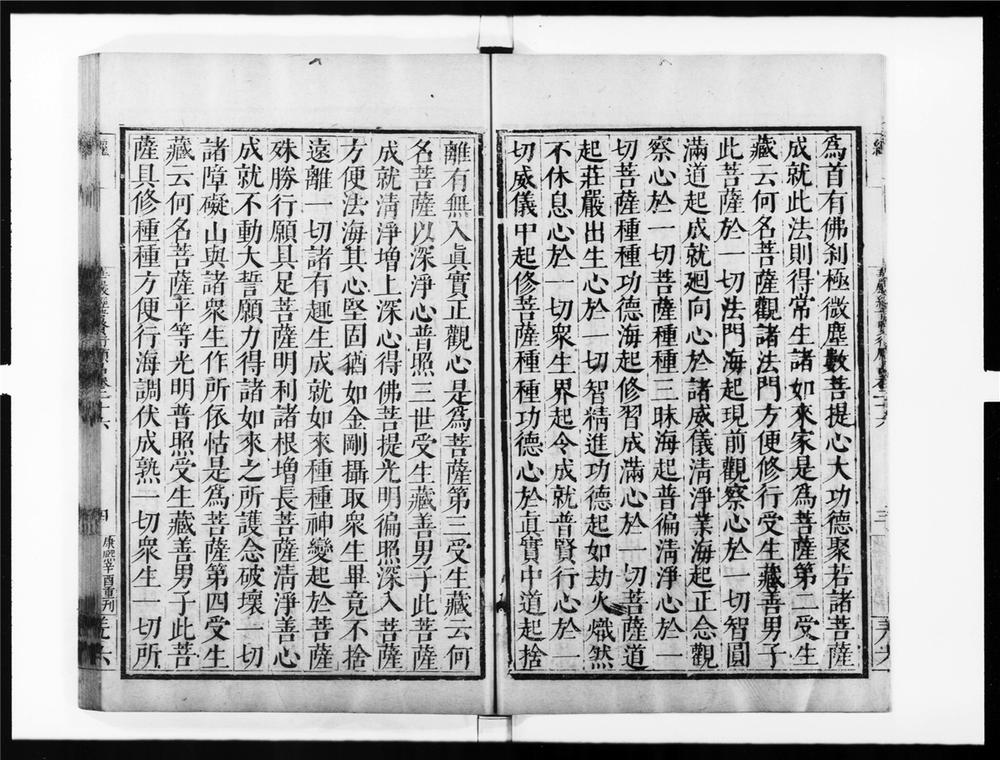 爲首有佛刹極微塵數菩提心大功德聚若諸菩薩
成就此法則得常生諸如來家是爲菩薩第二受生
藏云何名菩薩觀諸法門方便修行受生藏善男子
此菩薩於一切法門海起現前觀察心於一切智圓
滿道起成就廻向心於諸威儀清淨業海起正念觀
察心於一切菩薩種種三昧海起普徧清淨心於一
切菩薩種種功德海起修習成滿心於一切菩薩道
起莊嚴出生心於一切智精進功德起如劫火熾然
不休息心於一切衆生界起令成就普賢行心於一
切威儀中起修菩薩種種功德心於眞實中道起捨
離有無入眞實正觀心是爲菩薩第三受生藏云何
名菩薩以深淨心普照三世受生藏善男子此菩薩
成就清淨增上深心得佛菩提光明徧照深入菩薩
方便法海其心堅固猶如金剛攝取衆生畢竟不捨
遠離一切諸有趣生成就如來種種神變起於菩薩
殊勝行願具足菩薩明利諸根增長菩薩清淨善心
成就不動大誓願力得諸如來之所護念破壞一切
諸障礙山與諸衆生作所依怙是爲菩薩第四受生
藏云何名菩薩平等光明普照受生藏善男子此菩
薩具修種種方便行海調伏成熟一切衆生一切所
四
康熙辛酉重刊